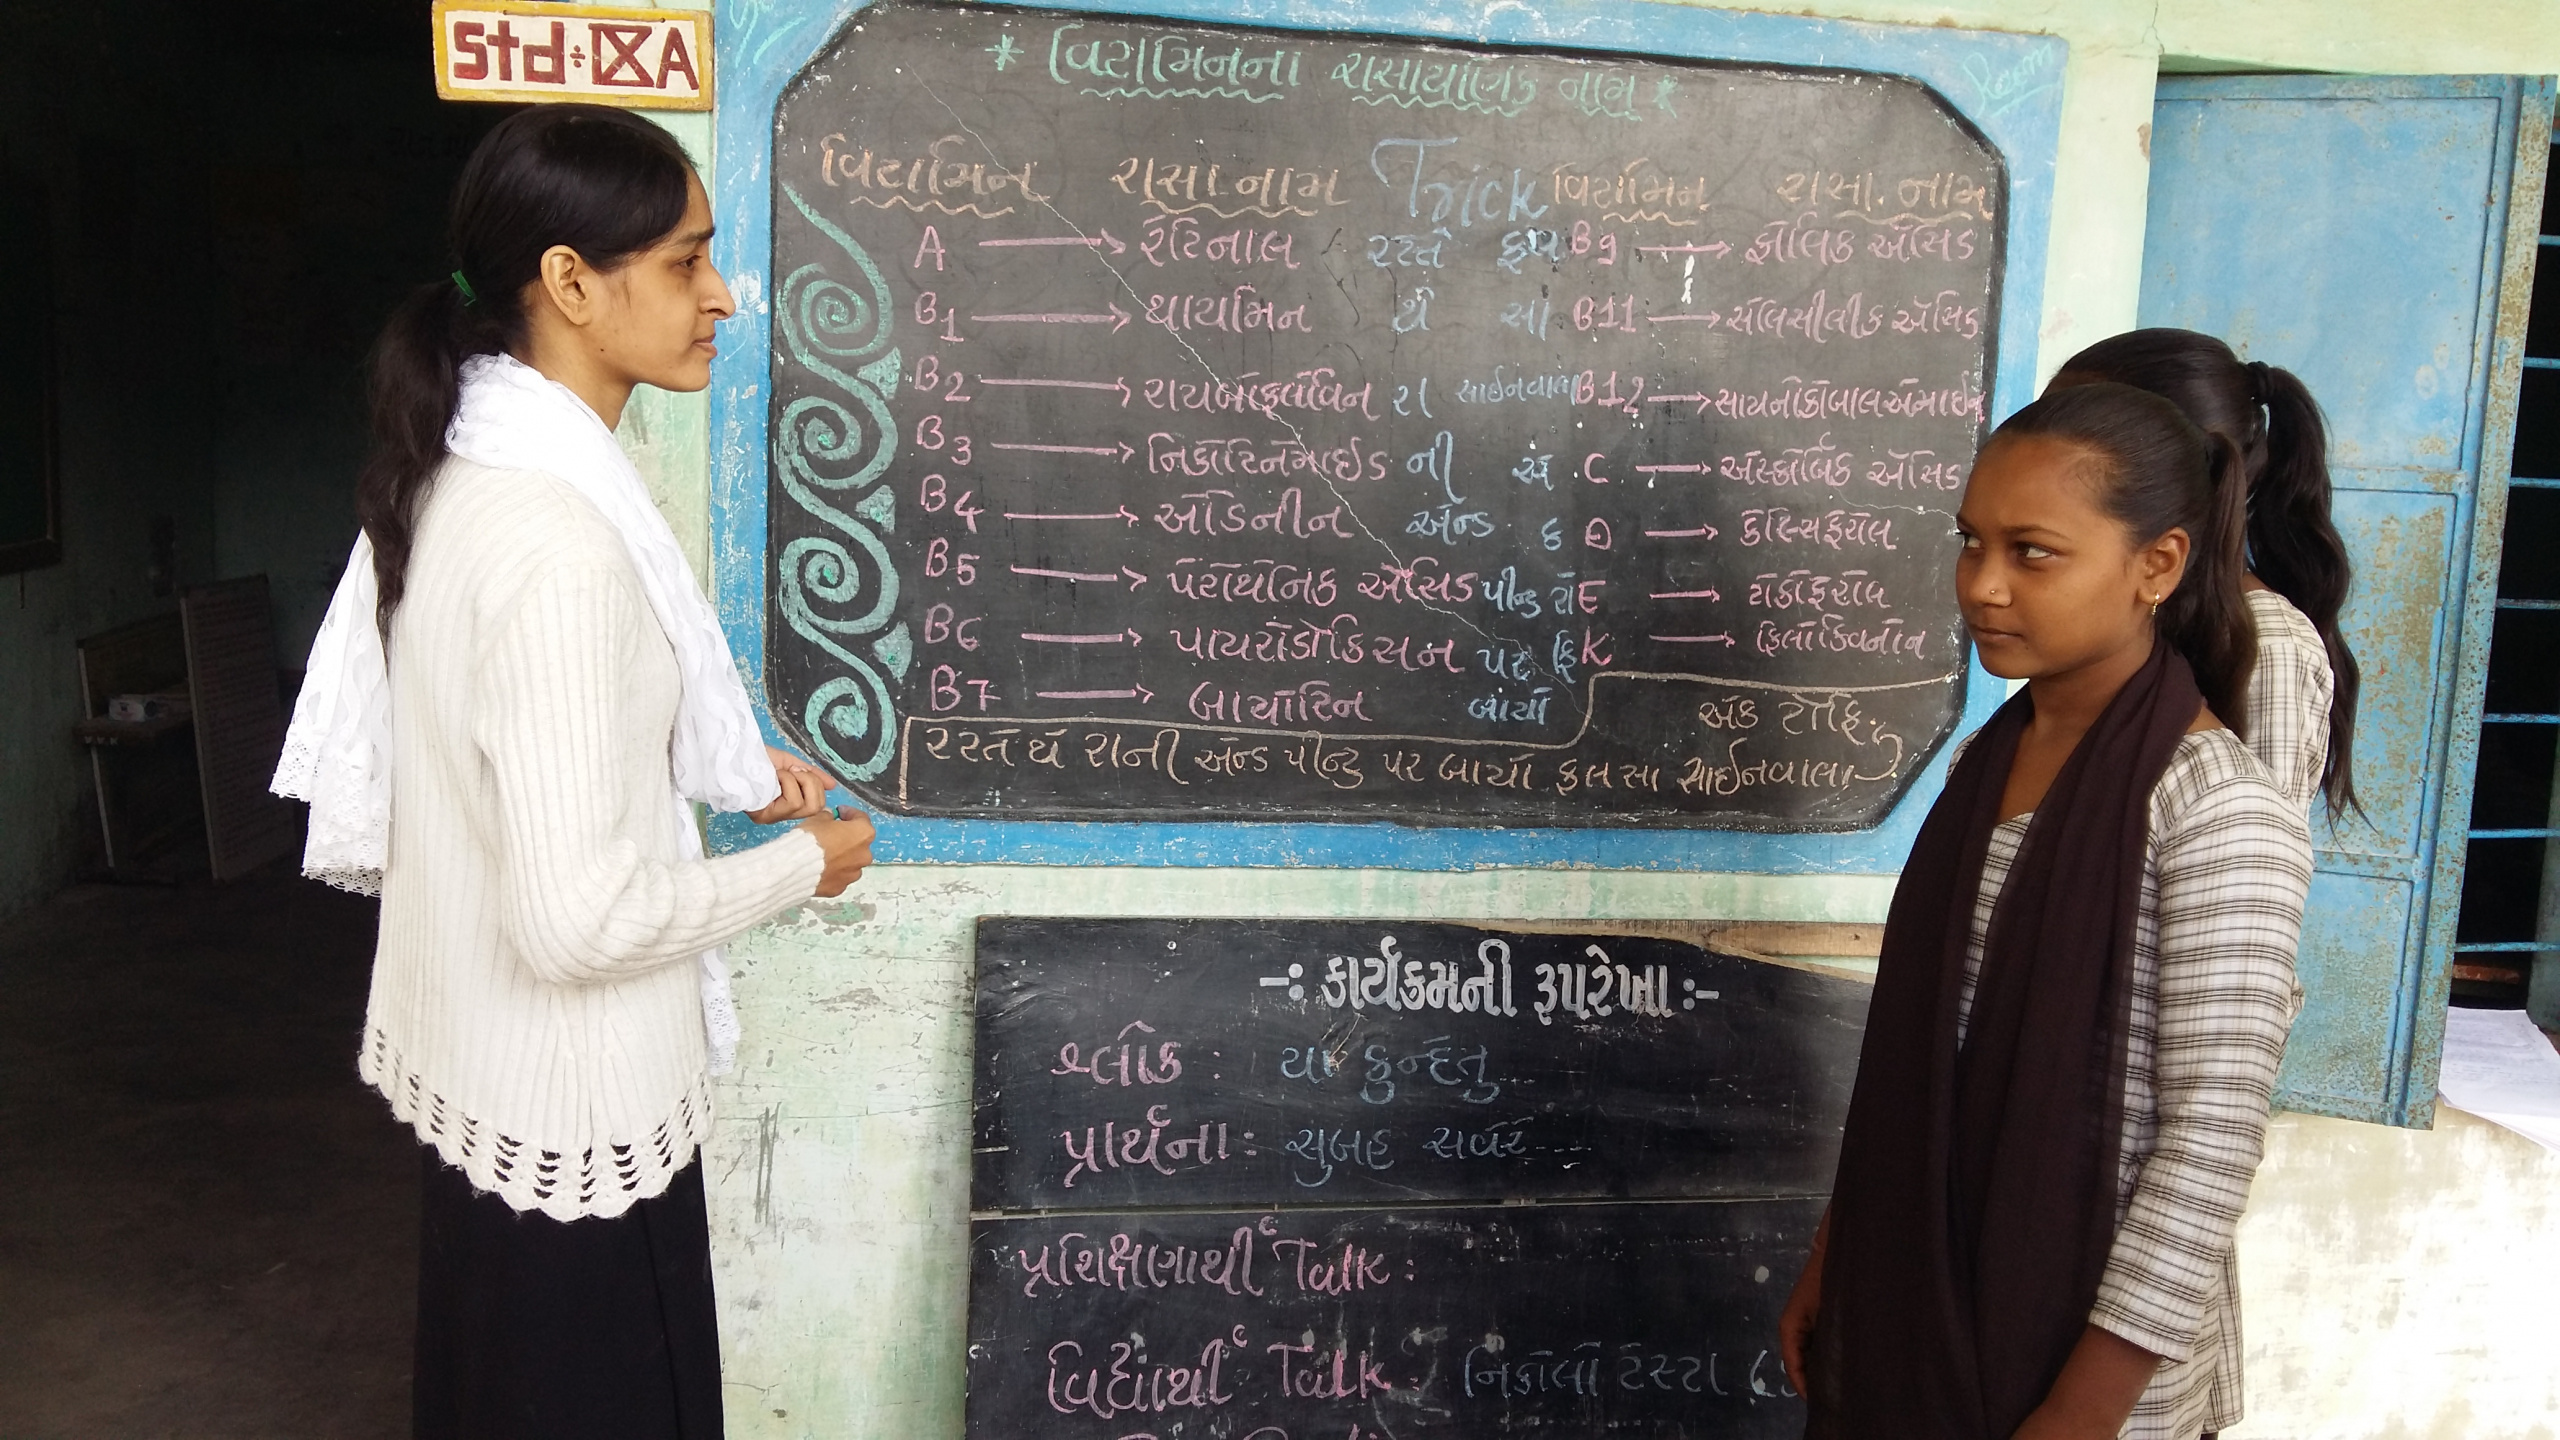 Std÷IXA
* વિટામિનના રાસાયણિક નામ *
વિટામિન રાસા.નામ Trick વિટામિન રાસા. નામ
A → રેટિનાલ રટતે ફલ B9 → ફોલિક ઍસિડ
B1 → થાયમિન થે સા B11 → સેલિસીલીક ઍસિડ
B2 → રાયબોફ્લેવિન રા સાઈનવાલા B12 → સાયનોકોબાલએમાઈન
B3 → નિકોટિનેમાઈડ ની એ C → એસ્કોર્બિક ઍસિડ
B4 → ઍડિનીન એન્ડ ક D → કેલ્સિફેરોલ
B5 → પેન્ટોથેનિક ઍસિડ પીન્ટુ ટો E → ટોકોફેરોલ
B6 → પાયરીડોકિસન પર ફિ K → ફિલોક્વિનોન
B7 → બાયોટિન બાંયો
એક ટોફિ
રટતે થે રાની એન્ડ પીન્ટુ પર બાયો ફલ સા સાઈનવાલા
-: કાર્યક્રમની રૂપરેખા :-
શ્લોક : યા કુન્દેતુ
પ્રાર્થના : સુબહ સવેરે ....
પ્રશિક્ષણાર્થી Talk :
વિદ્યાર્થી Talk : નિકોલો ટેસ્ટા